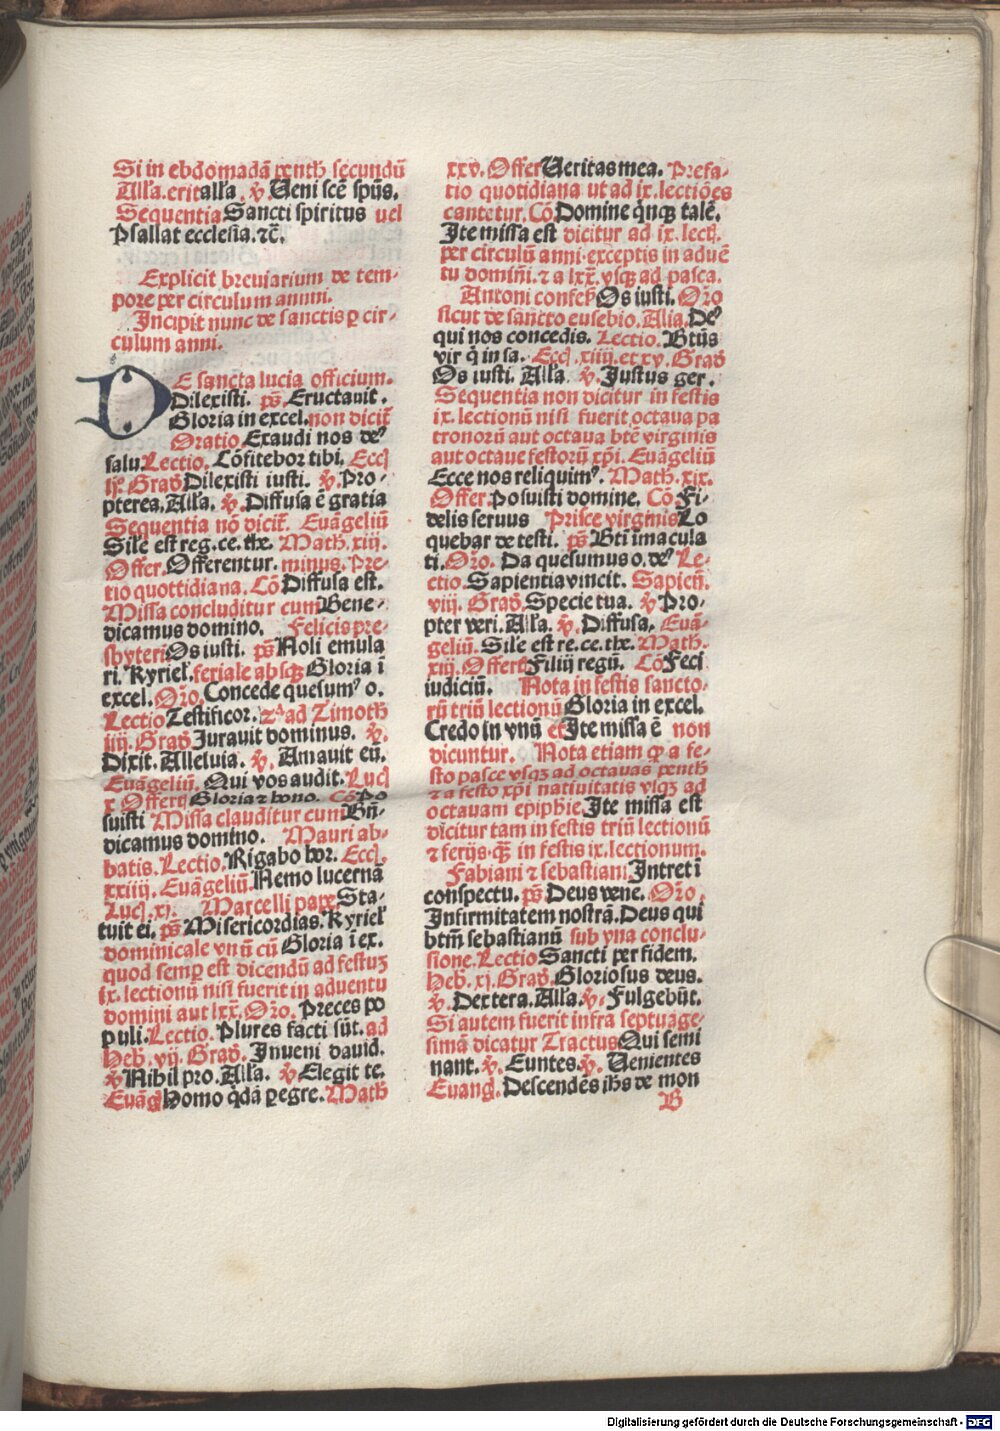 Si in ebdomadā pentħ secundū
Alľa. erit alľa. ℣ Veni scē spūs.
Sequentia Sancti spiritus vel
Psallat ecclesia. ⁊c̄.
Explicit breuiarium de tem-
pore per circulum annni.
Incipit nunc de sanctis ꝑ cir-
culum anni.
DE sancta lucia officium.
Dilexisti. ps̄ Eructauit.
Gloria in excel. non dicit̄
Oratio Exaudi nos de⁹
salu. Lectio. Cōfitebor tibi. Eccļ
lj. Građ Dilexisti iusti. ℣. Pro-
pterea. Alľa. ℣. Diffusa ē gratia
Sequentia nō dicit̄. Euāgeliū
Sile est reg. ce. the. Matħ. xiij.
Offer. Offerentur. minus. Pre-
tio quottidiana. Cō Diffusa est.
Missa concluditur cum Bene-
dicamus domino. Felicis pre-
sbyteri Os iusti. ps̄ Noli emula
ri. Kyrieľ. feriale absqꝫ Gloria ī
excel. Oř̄o. Concede quesum⁹ o.
Lectio Testificor. 2ᵃ ad Timotħ
iiij. Građ Jurauit dominus. ℣.
Dixit. Alleluia. ℣. Amauit eū.
Euāgeliū. Qui vos audit. Lucļ
x Offerť Gloria ⁊ hono. Cō Po
suisti Missa clauditur cum Bn̄-
dicamus domino. Mauri ab-
batis. Lectio. Rigabo hor. Eccļ.
xxiiij. Euāgeliū. Nemo lucernā
Lucļ. xj. Marcelli pape Sta-
tuit ei. ps̄ Misericordias. Kyrieľ
dominicale vnū cū Gloria ī ex.
quod semꝑ est dicendū ad festuꝫ
ix. lectionū nisi fuerit in aduentu
domini aut lxx̄. Oř̄o. Preces po
puli. Lectio. Plures facti sūt. ad
Heb̄. vij. Građ. Inueni dauid.
℣ Nihil pro. Alľa. ℣ Elegit te.
Euāg Homo q̇dā ꝑegre. Matħ
xxv. Offer Veritas mea. Prefa-
tio quotidiana ut ad ix. lectiōes
cantetur. Cō Domine q̇nqꝫ talē.
Ite missa est dicitur ad ix. lecť.
per circulū anni. exceptis in aduē
tu domin̄i. ⁊ a lxx̄. vsqꝫ ad pasca.
Antoni confeſ̄ Os iusti. Oř̄o
sicut de sancto eusebio. Alia. De⁹
qui nos concedis. Lectio. Btūs
vir q̇ in sa. Eccļ .xiiij. et xv. Građ
Os iusti. Alľa. ℣. Justus ger.
Sequentia non dicitur in festis
ix. lectionū nisi fuerit octaua pa
tronorū aut octaua btē virginis
aut octaue festorū xp̄i. Euāgeliū
Ecce nos reliquim⁹. Matħ. xix.
Offer Posuisti domine. Cō Fi-
delis seruus Prisce virginis Lo
quebar de testi. ps̄ Bti īmacula
ti. Oř̄o. Da quesumus o. de⁹ Le-
ctio. Sapientia vincit. Sapien̄.
viij. Građ. Specie tua. ℣ Pro-
pter veri. Alľa. ℣. Diffusa. Euā-
geliū. Sile est re. ce. the. Matħ.
xiij. Offerť Filiı̄ regū. Cō Feci
iudiciū. Nota in festis sancto-
rū triū lectionū Gloria in excel.
Credo in vnū et Ite missa ē non
dicuntur. Nota etiam ꝙ a fe-
sto pasce vsqꝫ ad octauas pentħ
⁊ a festo xp̄i natiuitatis vsqꝫ ad
octauam epiphie Ite missa est
dicitur tam in festis triū lectionū
⁊ ferijs. qꝫ̄ in festis ix. lectionum.
Fabiani ⁊ sebastiani Intret ī
conspectu. ps̄ Deus vene. Oř̄o.
Infirmitatem nostrā. Deus qui
btm̄ sebastianū sub vna conclu-
sione. Lectio Sancti per fidem.
Heb. xj. Građ. Gloriosus deus.
℣. Dextera. Alľa. ℣. Fulgebūt.
Si autem fuerit infra septuage-
simā dicatur Tractus Qui semi
nant. ℣. Euntes. ℣. Venientes
Euang. Descendēs ih̄s de mon
B
Digitalisierung gefördert durch die Deutsche Forschungsgemeinschaft - DFG